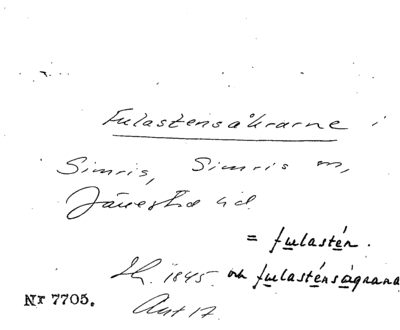 Fulastensåkrarne i
Simris, Simris sn,
Järrestad hd.
= fulastén.
Sk. 1845. och fulasténsågrana
Akt 17.
Nr 7705.